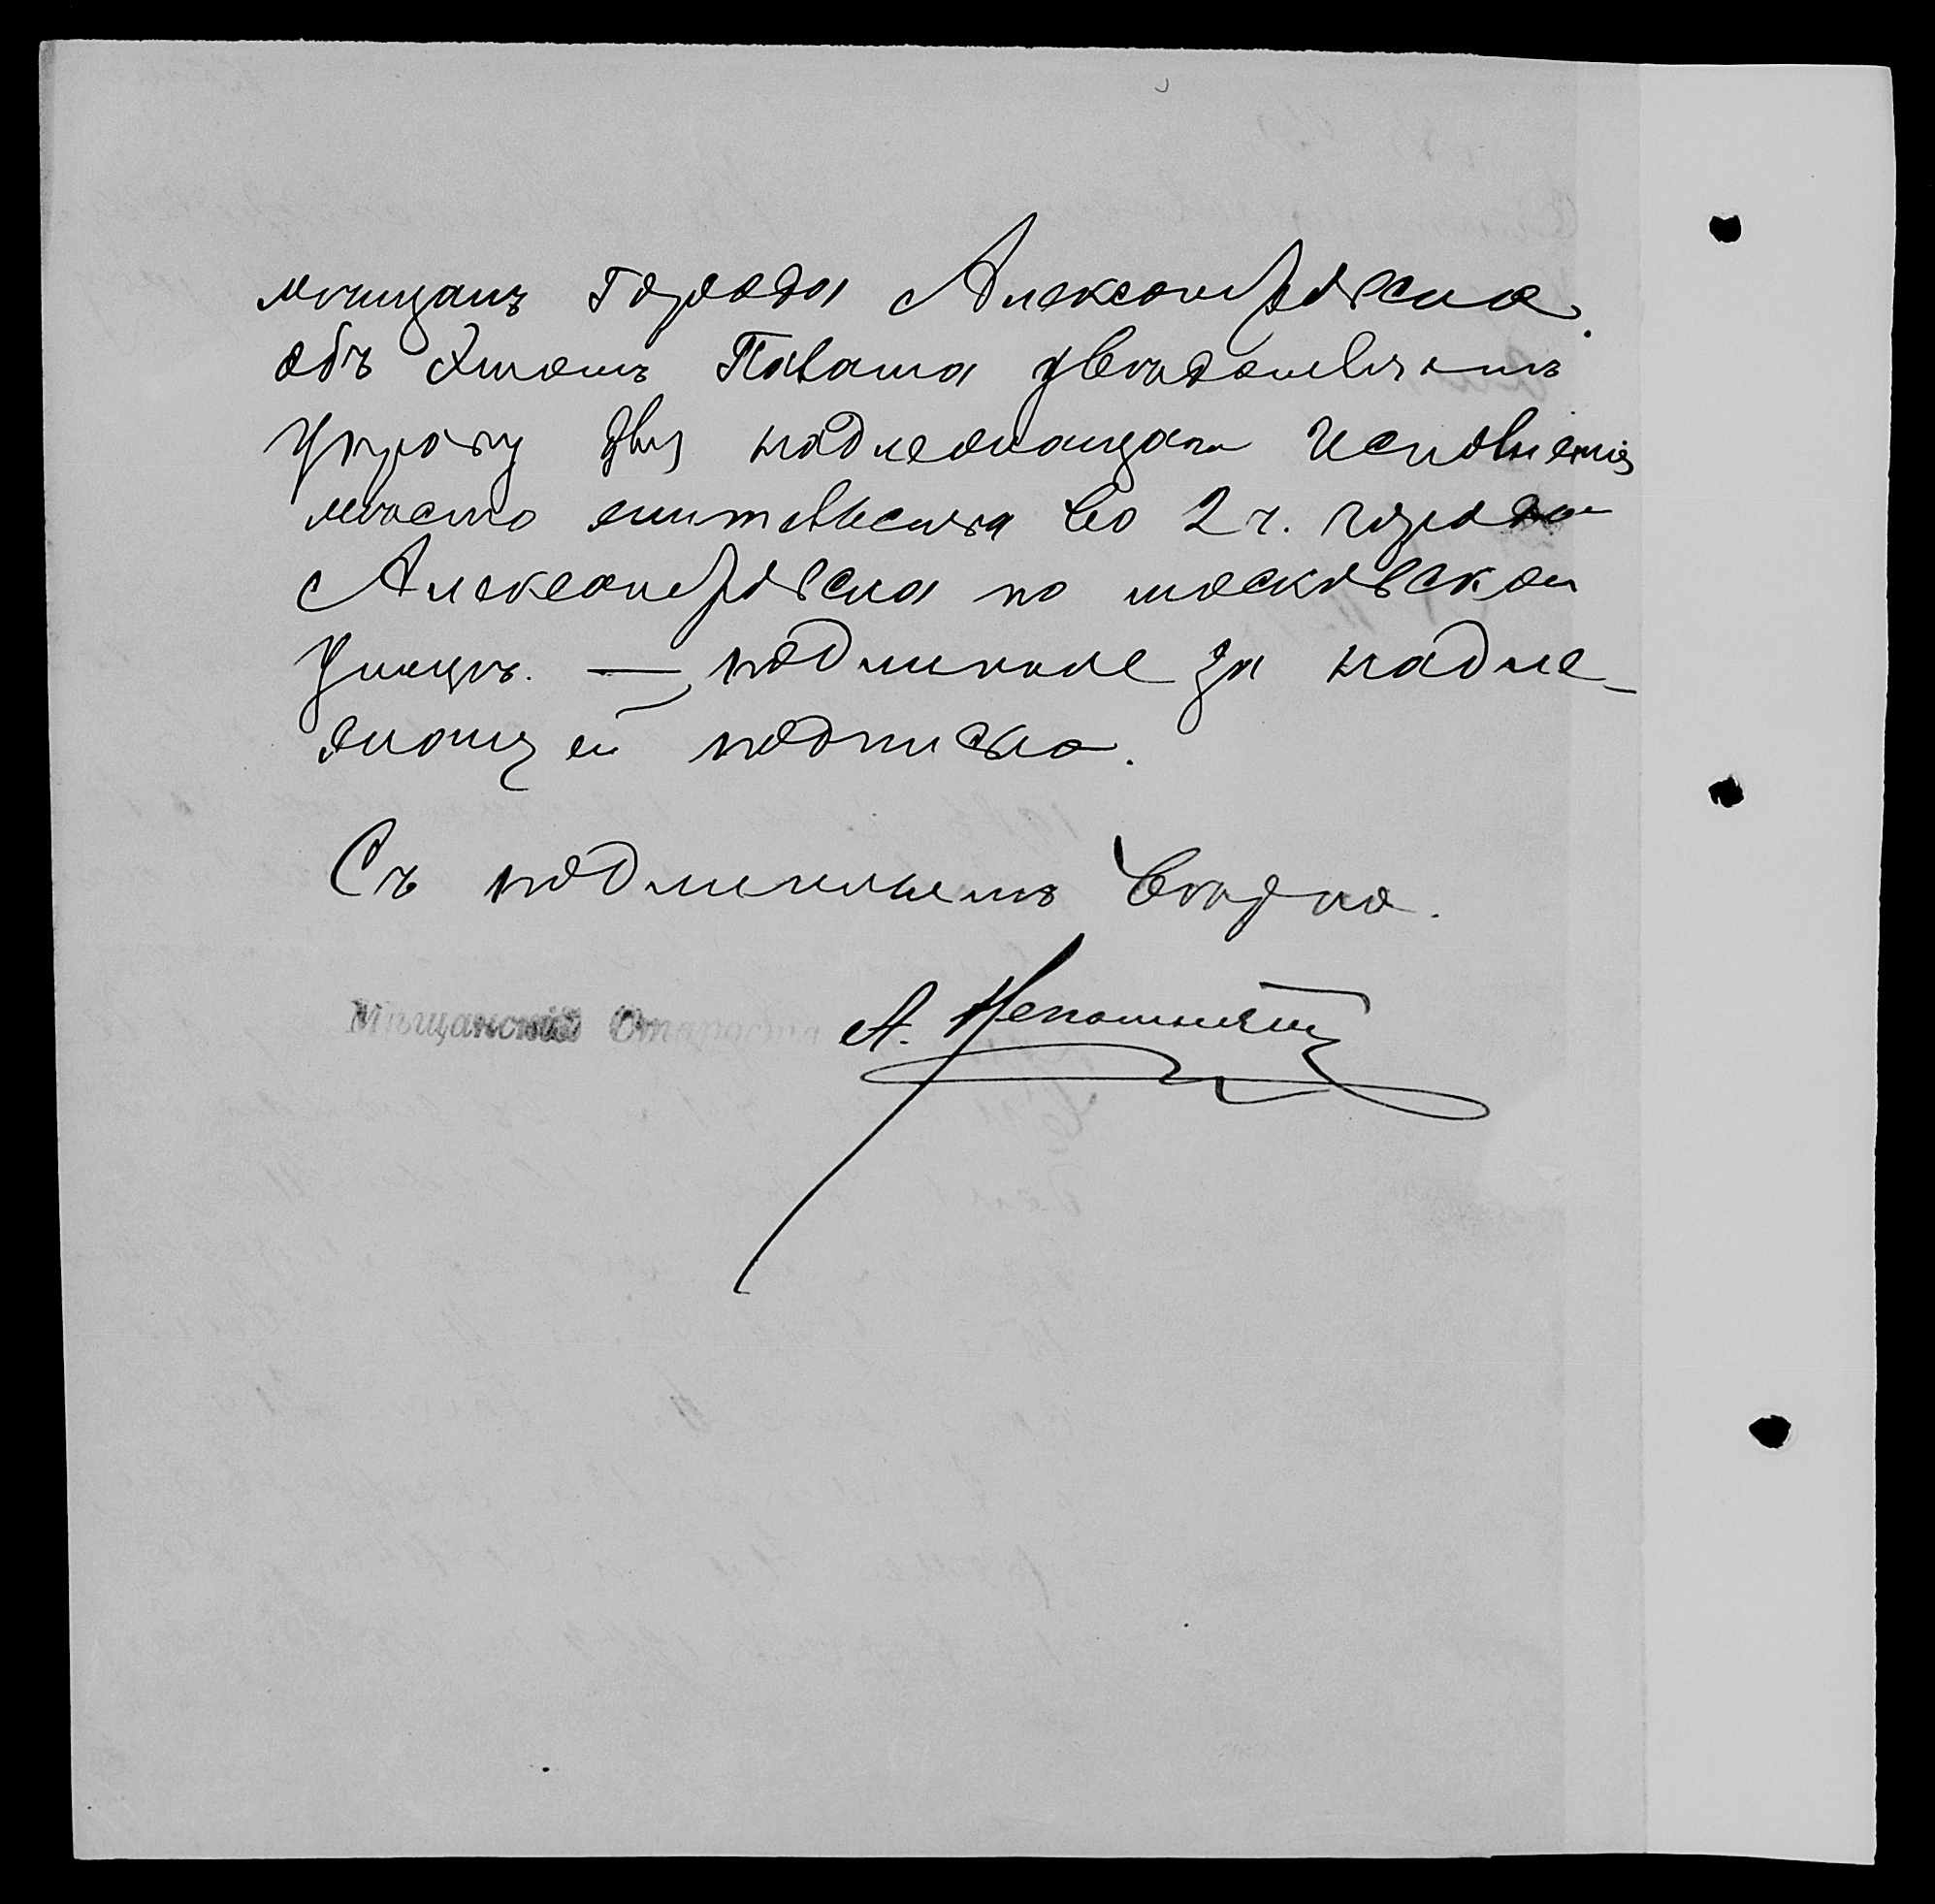 мѣщанъ города Александровска.
объ этомъ Палата увѣдомляетъ
Управу для надлежащаго исполненія
мѣсто жительства во 2 ч. города
Александровска по московской
улицѣ. — подлинное за надле-
жащей подписью.
Съ подлиннымъ вѣрно.
Мѣщанскій Староста А. Непомнящ